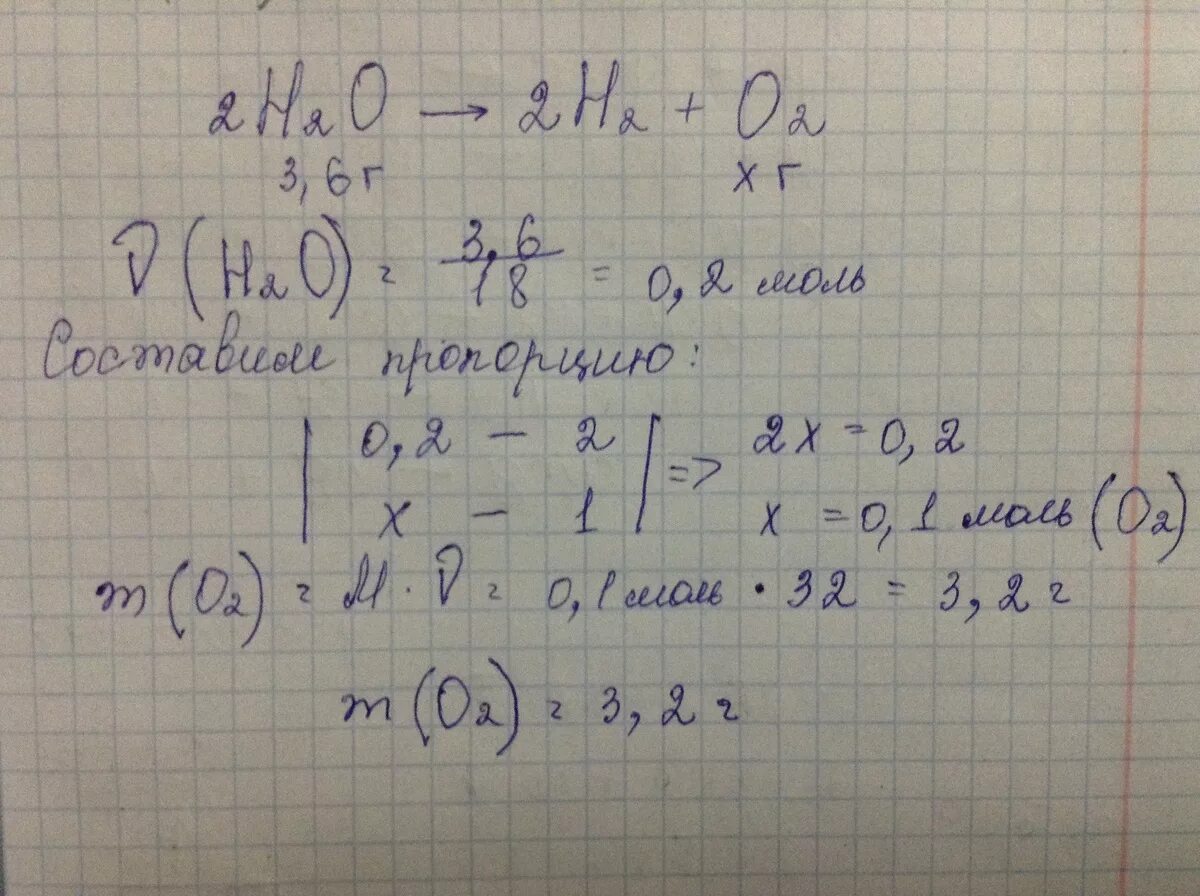 2H₂O → 2H₂ + O₂
3,6 г х г
ν(H₂O) = 3,6/18 = 0,2 моль
Составим пропорцию:
| 0,2 – 2 | => 2x = 0,2
| x – 1 | x = 0,1 моль (O₂)
m(O₂) = M · ν = 0,1 моль · 32 = 3,2 г
m(O₂) = 3,2 г